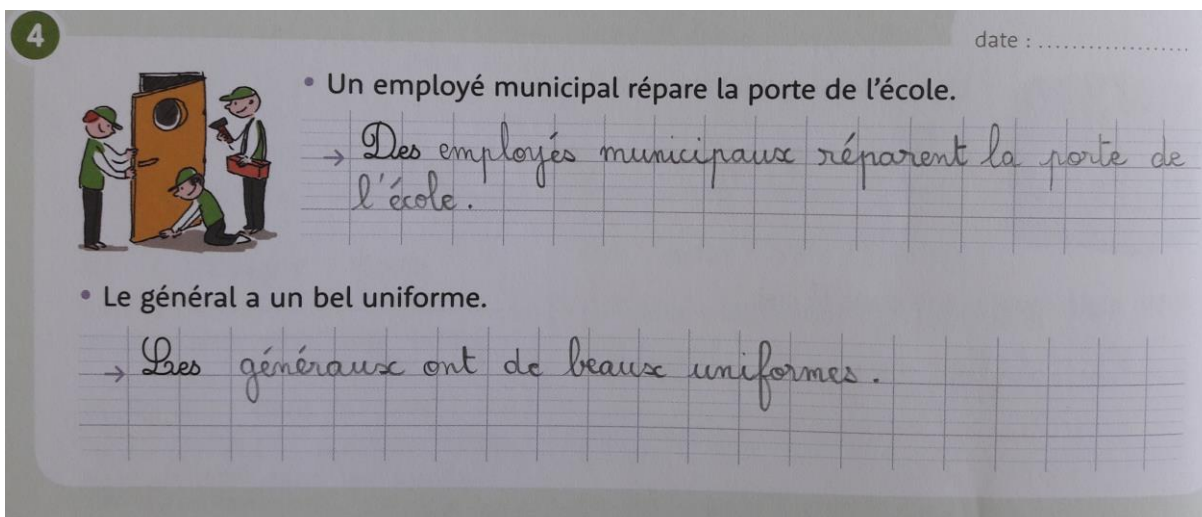 4
date : ....................
• Un employé municipal répare la porte de l'école.
→ Des employés municipaux réparent la porte de
l'école.
• Le général a un bel uniforme.
→ Les généraux ont de beaux uniformes.